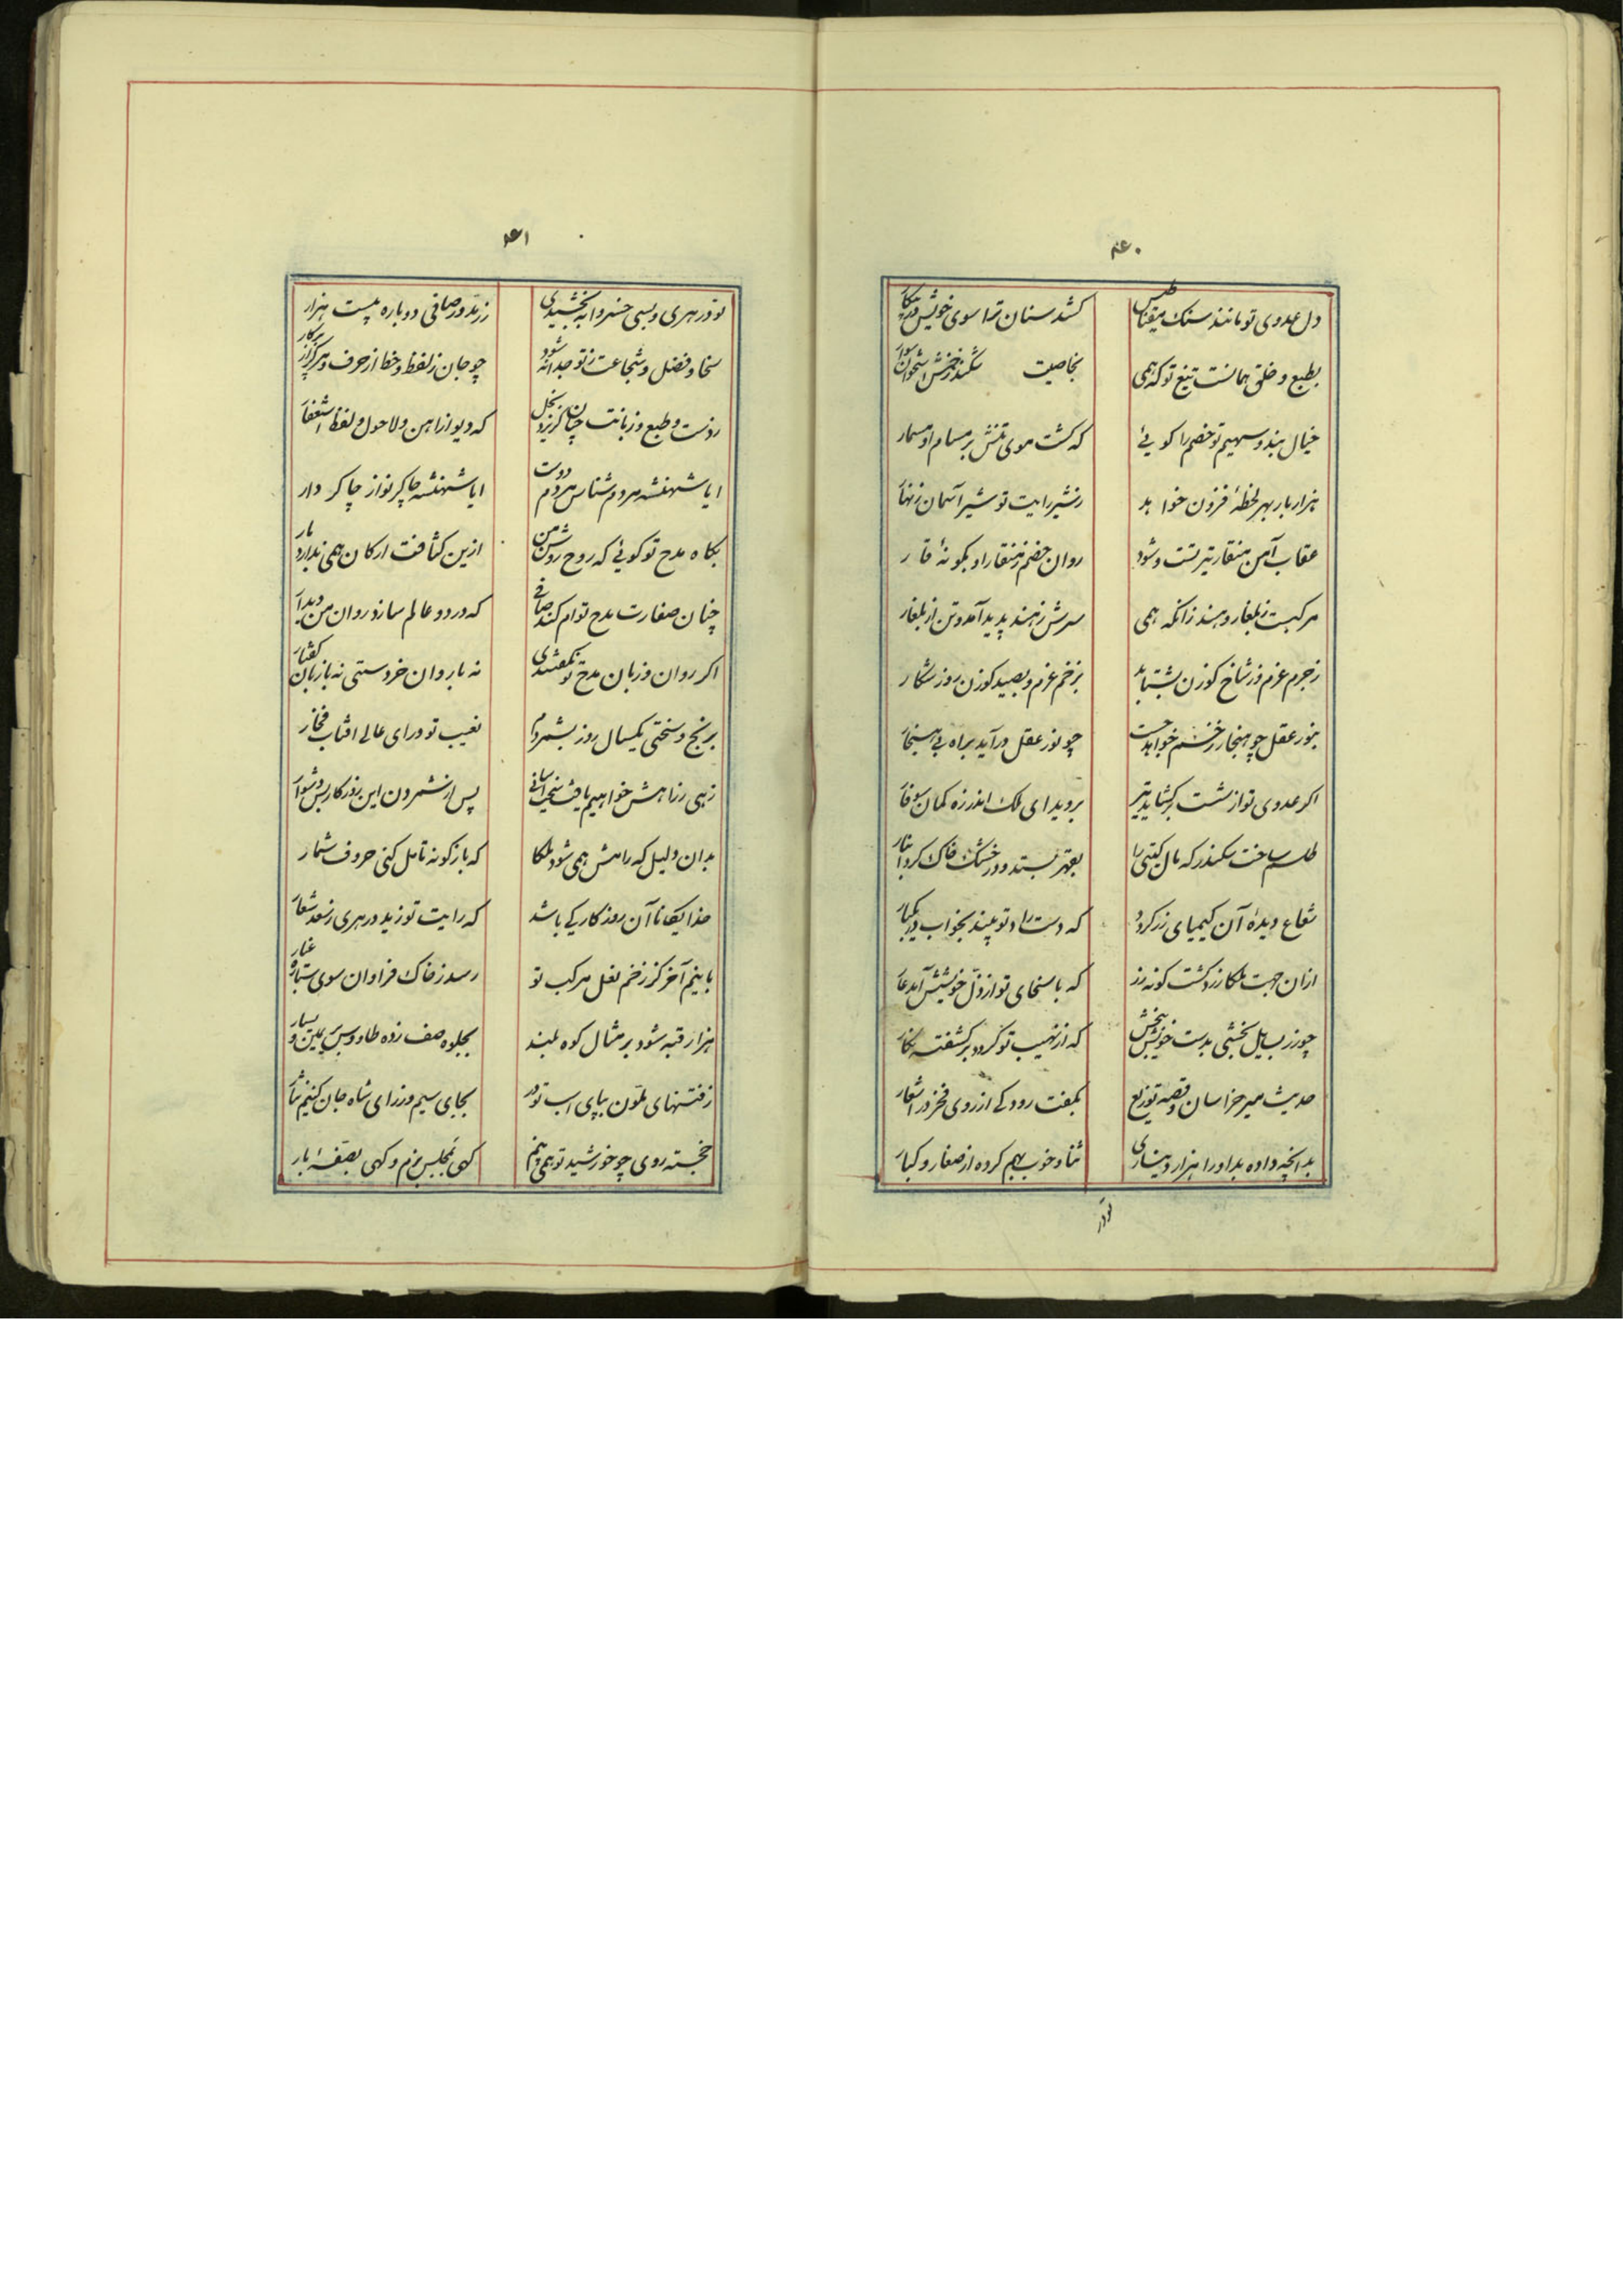 ۴۶۰
دل عدوی تو مانند سنک مغناطیس کشد سنان ترا سوی خویش در پیکار
بطبع و خلق همانست تیغ تو که همی بخاصیت شکند زخمش استخوان سوار
خیال بندد سهم تو خصم را کوئی که کشت موی تنش بر مسام او مسمار
هزار بار بهر لحظهٔ فزون خواهد ز شیر رایت تو شیر آسمان زنهار
عقاب آهن منقار تیر تست و شود روان خصم ز منقار او بکونهٔ قار
مرکبست ز بلغار و هند زانکه همی سرش ز هند پدید آمد و تن از بلغار
ز جرم غرم و ز شاخ کوزن بشتابد بزخم غرم و بصید کوزن روز شکار
بنور عقل چو هنجار خصم خواهد جست چو نور عقل درآید براه بی هنجار
اکر عدوی تو از شست برکشاید تیر بروید ای ملک اندر زه کمان سوفار
طلسم ساخت سکندر که مال کیتی را بقهر بستد و در خشک خاک کرد انبار
شعاع دیدهٔ آن کیمیای زر کردد که دست راد تو بیند بخواب در یکبار
ازان جهت ملکا زرد کشت کونه زر که با سخای تو از ذل خویشش آمد عار
چو زر بسایل بخشی بدست خویش ببخش که از نهیب تو کردد برو کشفته نکار
حدیث میر خراسان و قصه توزیع بکفت رودکی از روی فخر در اشعار
بدانچه داده بد او را هزار دیناری ثنا و خوب بهم کرده از صغار و کبار
تو در
۴۶۱
تو در هری و بسی خسروانه بخشیدی زر مدور صافی دو باره بیست هزار
سخا و فضل و شجاعت ز تو جدا نشود چو جان ز لفظ و خط از حرف و مرکز از پرکار
ز دست و طبع و زبانت چنان کریزد بخل که دیو از آهن و لاحول و لفظ استغفار
ایا شهنشه مردم شناس مردم دوست ایا شهنشه چاکر نواز چاکر دار
بکاه مدح تو کوئی که روح روشن من ازین کثافت ارکان همی ندارد بار
چنان صفارت مدح توام کند صافی که در دو عالم سازد روان من دیدار
اکر روان و زبان مدح تو نکفتندی نه با روان خردستی نه با زبان کفتار
برنج و سختی یکسال روز بشمردم بغیب تو و رای عالی افتاب فخار
پس از شمردن این روزکار بس دشوار
بدان دلیل که رامش همی شود ملکا که بازکونه تامل کنی حروف شمار
خدایکانا آن روزکار کی باشد که رایت تو زید در هری ز سعد شعار
بابینم آخر کز زخم نعل مرکب تو رسد ز خاک فراوان سوی ستاره غبار
هزار قبه شود بر مثال کوه بلند بجلوه صف زده طاووس بر یمین و یسار
ز فتنهای ملون بپای اسب تو در بجای سیم و زر ای شاه جان کنیم نثار
خجسته روی چو خورشید تو همی بینم کهی بمجلس بزم و کهی بصفهٔ بار